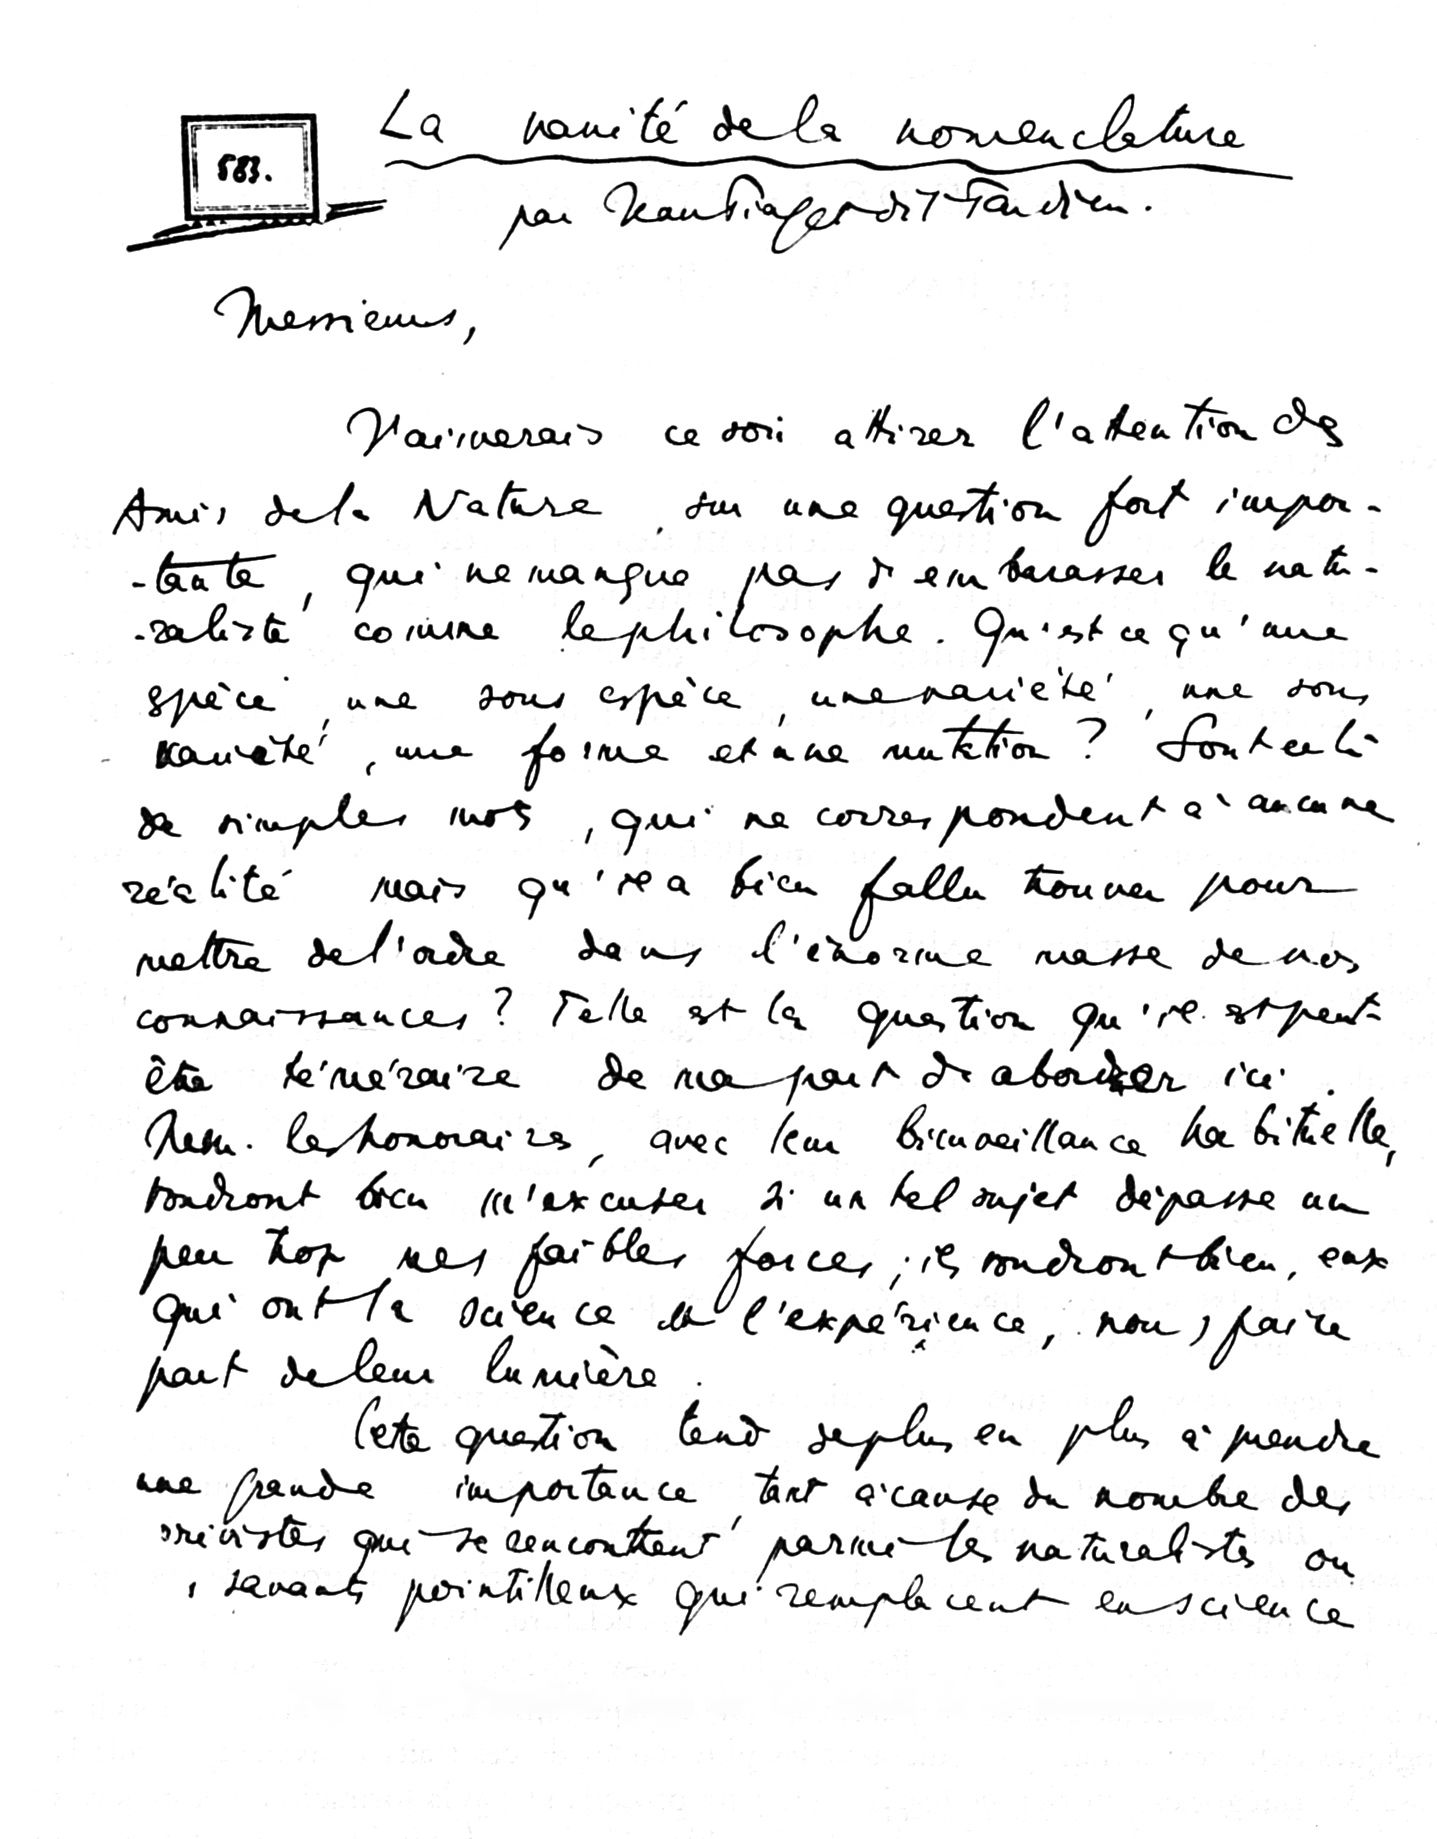 583.
La vanité de la nomenclature
par Jean Piaget dit Tardieu.
Messieurs,
J'aimerais ce soir attirer l'attention des
Amis de la Nature, sur une question fort impor-
-tante, qui ne manque pas d'embarasser le natu-
-raliste comme le philosophe. Qu'est ce qu'une
espèce, une sous espèce, une variété, une sous
variété, une forme et une mutation ? Sont ce là
de simples mots, qui ne correspondent à aucune
réalité mais qu'il a bien fallu trouver pour
mettre de l'ordre dans l'énorme masse de nos
connaissances ? Telle est la question qu'il est peut-
être téméraire de ma part d'aborder ici.
Mess. les honoraires, avec leur bienveillance habituelle,
voudront bien m'excuser si un tel sujet dépasse un
peu trop mes faibles forces ; ils voudront bien, eux
qui ont la science et l'expérience, nous faire
part de leur lumière.
Cette question tend de plus en plus à prendre
une grande importance, tant à cause du nombre des
qui se rencontrent parmi les naturalistes ou
savants pointilleux qui remplacent en science